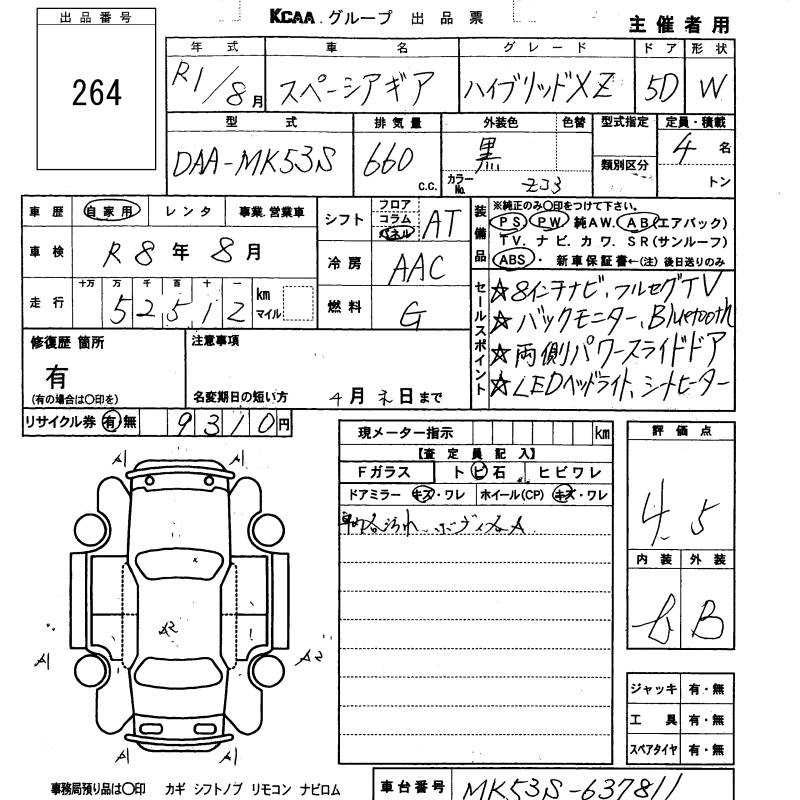 KCAA グループ 出品票
主催者用
出品番号
264
年式 車名 グレード ドア 形状
R1/8月 スペーシアギア ハイブリッドXZ 5D W
型式 排気量 外装色 色替 型式指定 定員・積載
DAA-MK53S 660 c.c. 黒 カラーNo. ZJ3 類別区分 4名 トン
車歴 自家用 レンタ 事業.営業車
車検 R8年8月
走行 十万 万 千 百 十 一
52512 km マイル
シフト フロア コラム パネル AT
冷房 AAC
燃料 G
装備品 ※純正のみ○印をつけて下さい。
PS PW 純AW. AB(エアバック)
TV. ナビ. カワ. SR(サンルーフ)
ABS・ 新車保証書←(注) 後日送りのみ
セールスポイント
☆8インチナビ、フルセグTV
☆バックモニター、Bluetooth
☆両側パワースライドドア
☆LEDヘッドライト、シートヒーター
修復歴 箇所
有
(有の場合は○印を)
注意事項
名変期日の短い方 4月末日まで
リサイクル券 有・無 9310円
現メーター指示 km
【査定員記入】
Fガラス トビ石 ヒビワレ
ドアミラー キズ・ワレ ホイール(CP) キズ・ワレ
評価点
4.5
内装 外装
B B
A1 A1
A2
A1 A2
A1 A1
ジャッキ 有・無
工具 有・無
スペアタイヤ 有・無
事務局預り品は○印 カギ シフトノブ リモコン ナビロム
車台番号 MK53S-637811